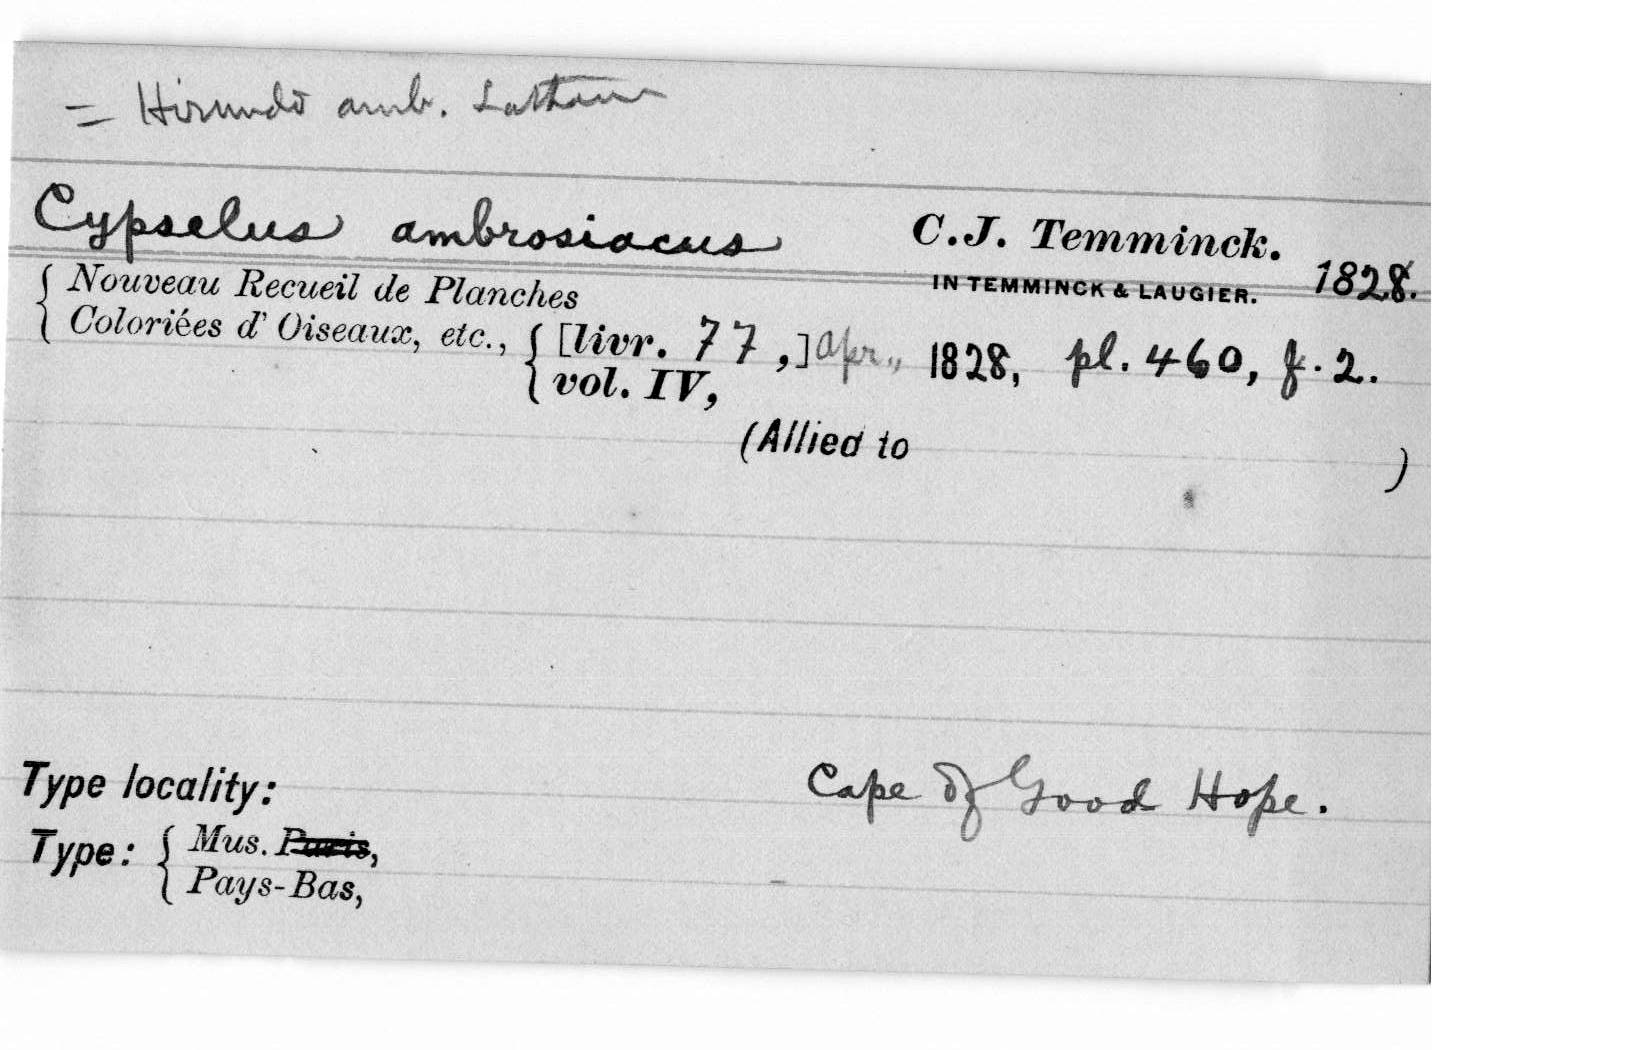 = Hirundo amb. Latham
Cypselus ambrosiacus C.J. Temminck.
IN TEMMINCK & LAUGIER. 1828.
Nouveau Recueil de Planches
Coloriées d' Oiseaux, etc., [livr. 77,] Apr., 1828, pl. 460, f. 2.
vol. IV,
(Allied to )
Type locality: Cape of Good Hope.
Type: Mus. Paris,
Pays-Bas,